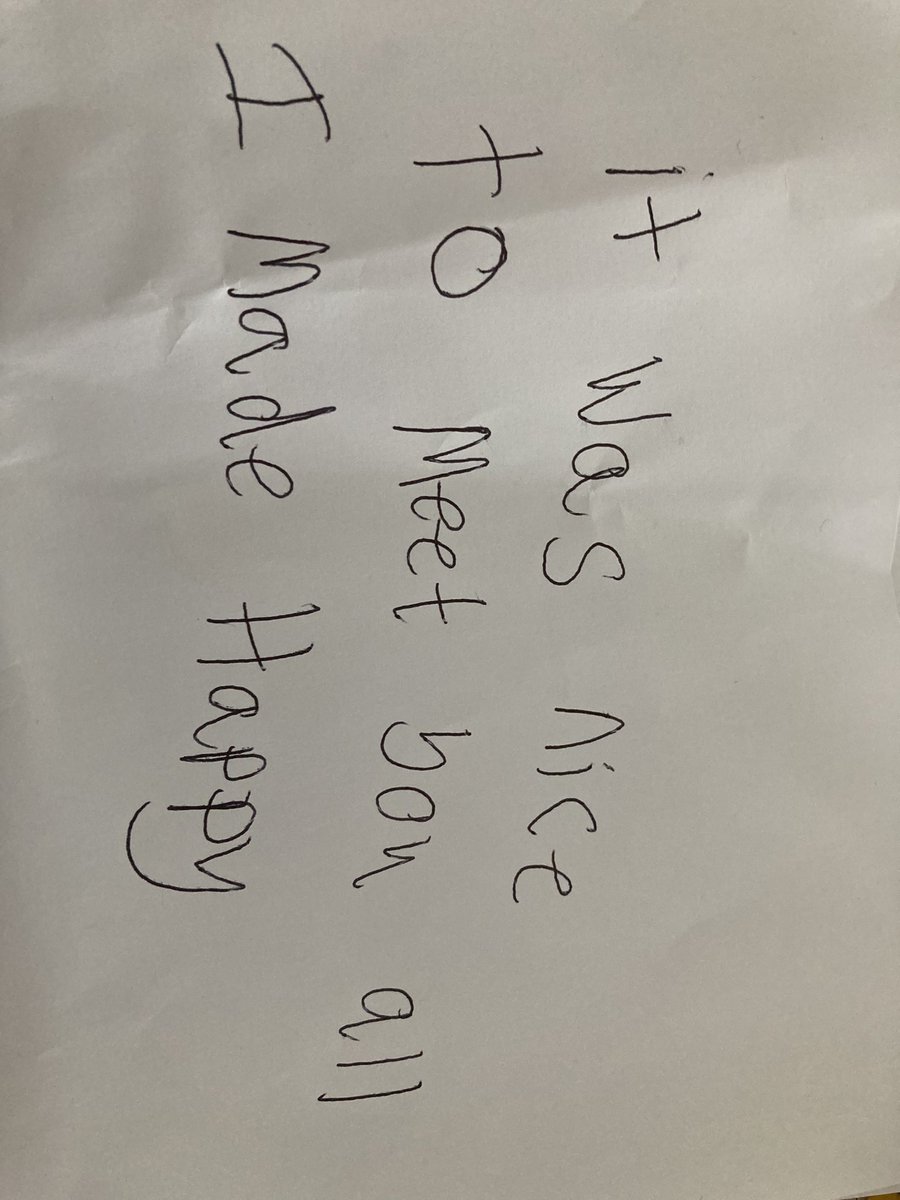 it was nice
to Meet you all
I Made Happy